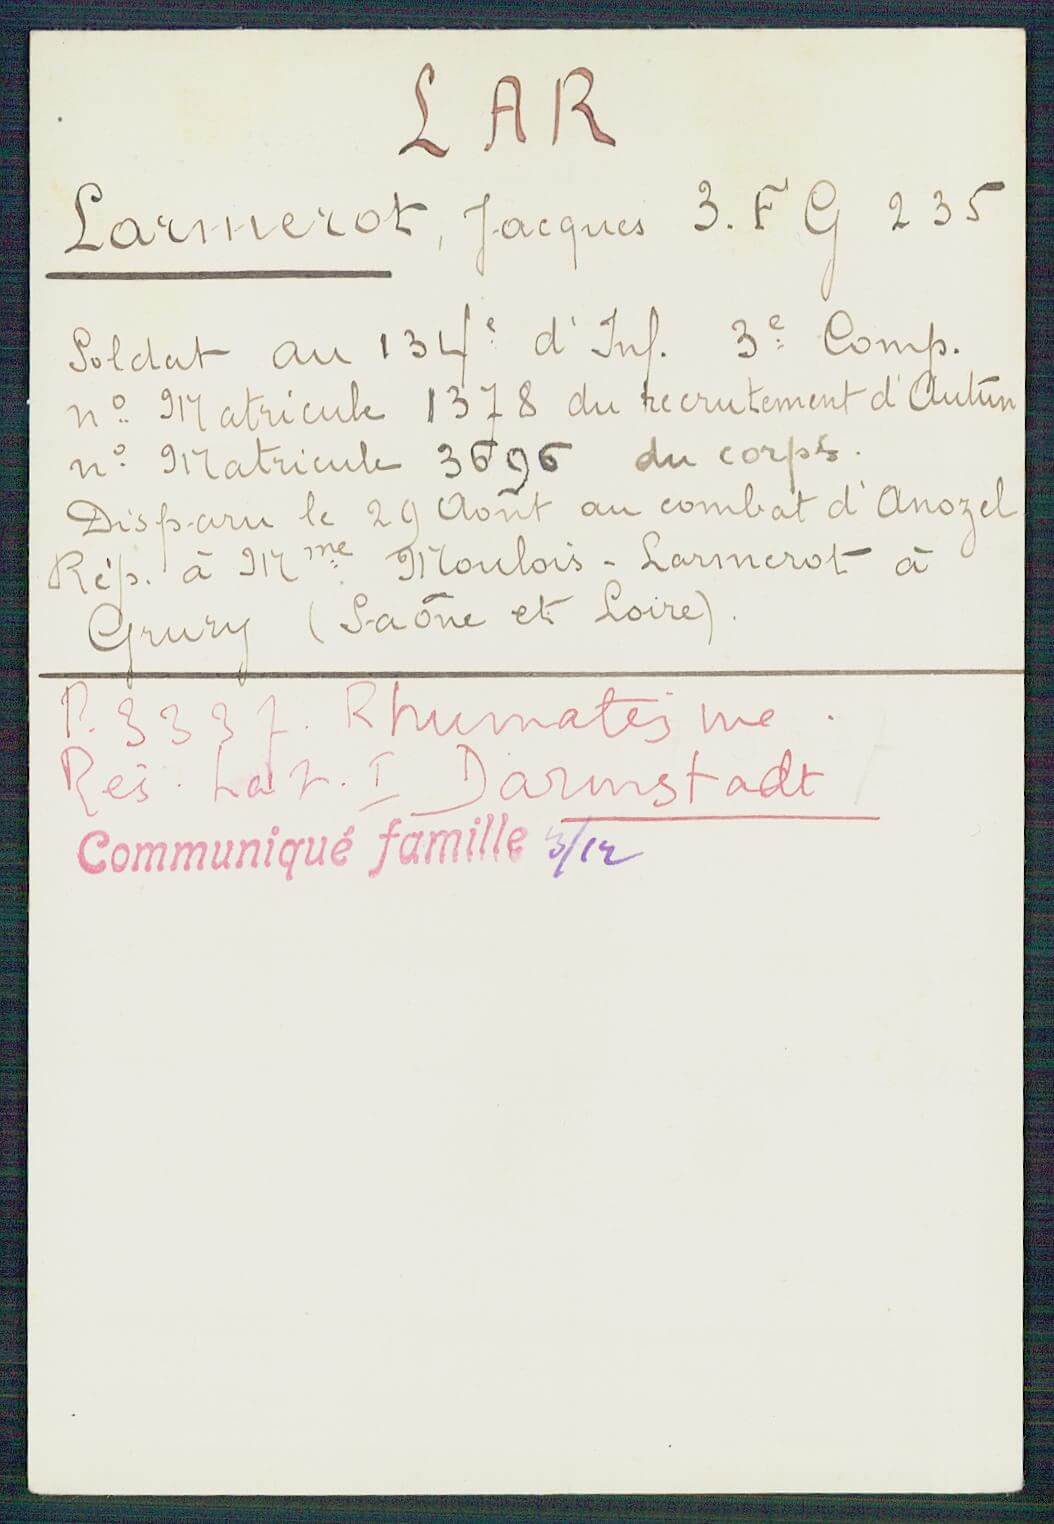 LAR
Larmerot, Jacques 3. F G 235
Soldat au 134e d'Inf. 3e Comp.
no Matricule 1378 du recrutement d'Autun
no Matricule 3696 du corps.
Disparu le 29 Août au combat d'Anozel
Rép. à Mme Moulois - Larmerot à
Grury (Saône et Loire).
P. 3337. Rhumatisme.
Res. Laz. I Darmstadt
Communiqué famille 3/12